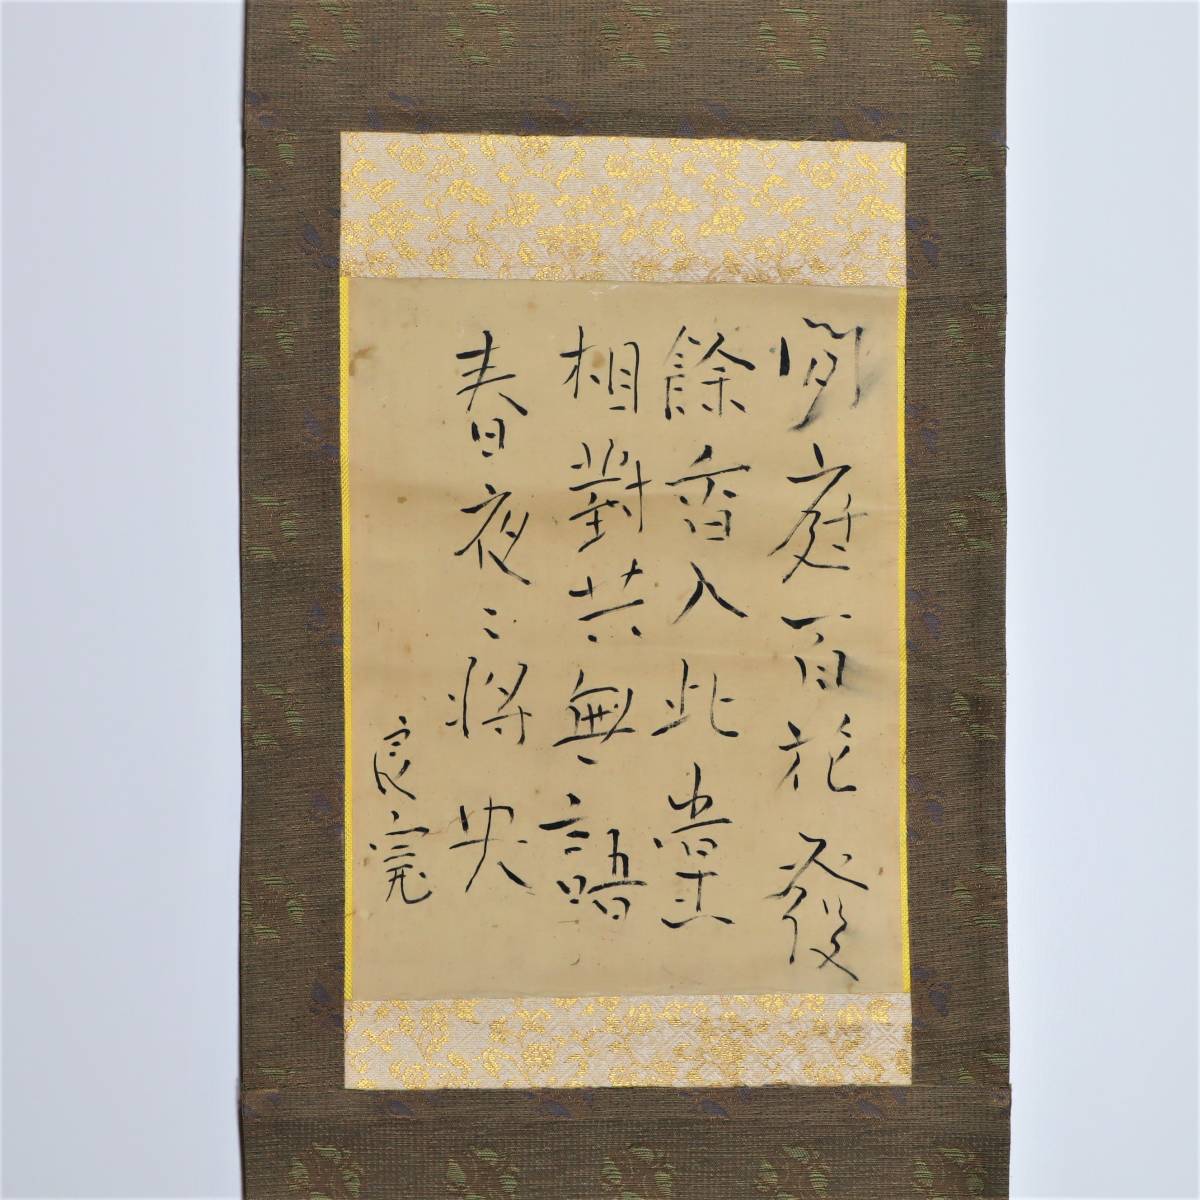 閒庭百花發
餘香入此堂
相對共無語
春夜々將央
良寛